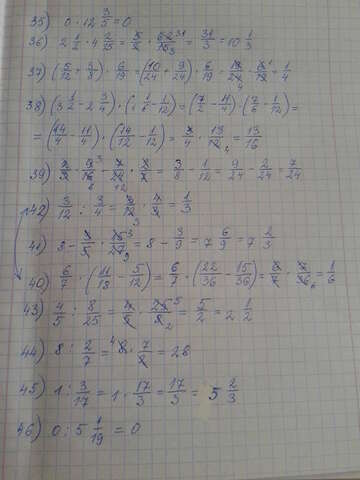 35) 0 · 12 3/5 = 0
36) 2 1/2 · 4 2/15 = 5/2 · 62 31/15 3 = 31/3 = 10 1/3
37) (5/12 + 3/8) · 6/19 = (10/24 + 9/24) · 6/19 = 19/24 4 · 6 1/19 = 1/4
38) (3 1/2 - 2 3/4) · (1 1/6 - 1/12) = (7/2 - 11/4) · (7/6 - 1/12) =
= (14/4 - 11/4) · (14/12 - 1/12) = 3/4 · 13/12 4 = 13/16
39) 2/3 · 9 3/16 8 - 7/24 12 · 2/7 = 3/8 - 1/12 = 9/24 - 2/24 = 7/24
42) 3/12 : 3/4 = 3/12 3 · 4/3 = 1/3
41) 8 - 3/5 · 15 3/27 9 = 8 - 3/9 = 7 6/9 = 7 2/3
40) 6/7 · (11/18 - 5/12) = 6/7 · (22/36 - 15/36) = 6/7 · 7/36 6 = 1/6
43) 4/5 : 8/25 = 4/5 · 25 5/8 2 = 5/2 = 2 1/2
44) 8 : 2/7 = 4 8 · 7/2 = 28
45) 1 : 3/17 = 1 · 17/3 = 17/3 = 5 2/3
46) 0 : 5 1/19 = 0